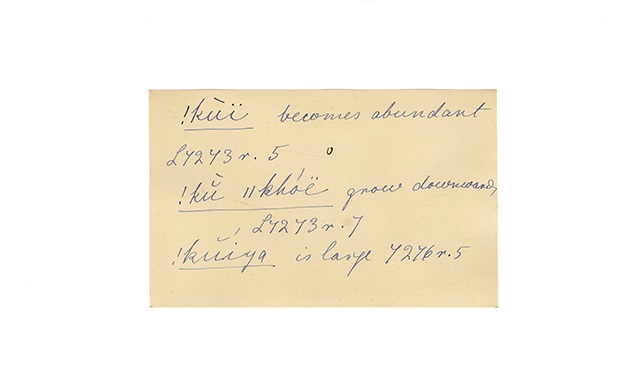 !kùï becomes abundant
L7273r. 5
!kŭ ǁkhóë grow downwards
L7273r. 7
!kŭíya is large 7276r. 5